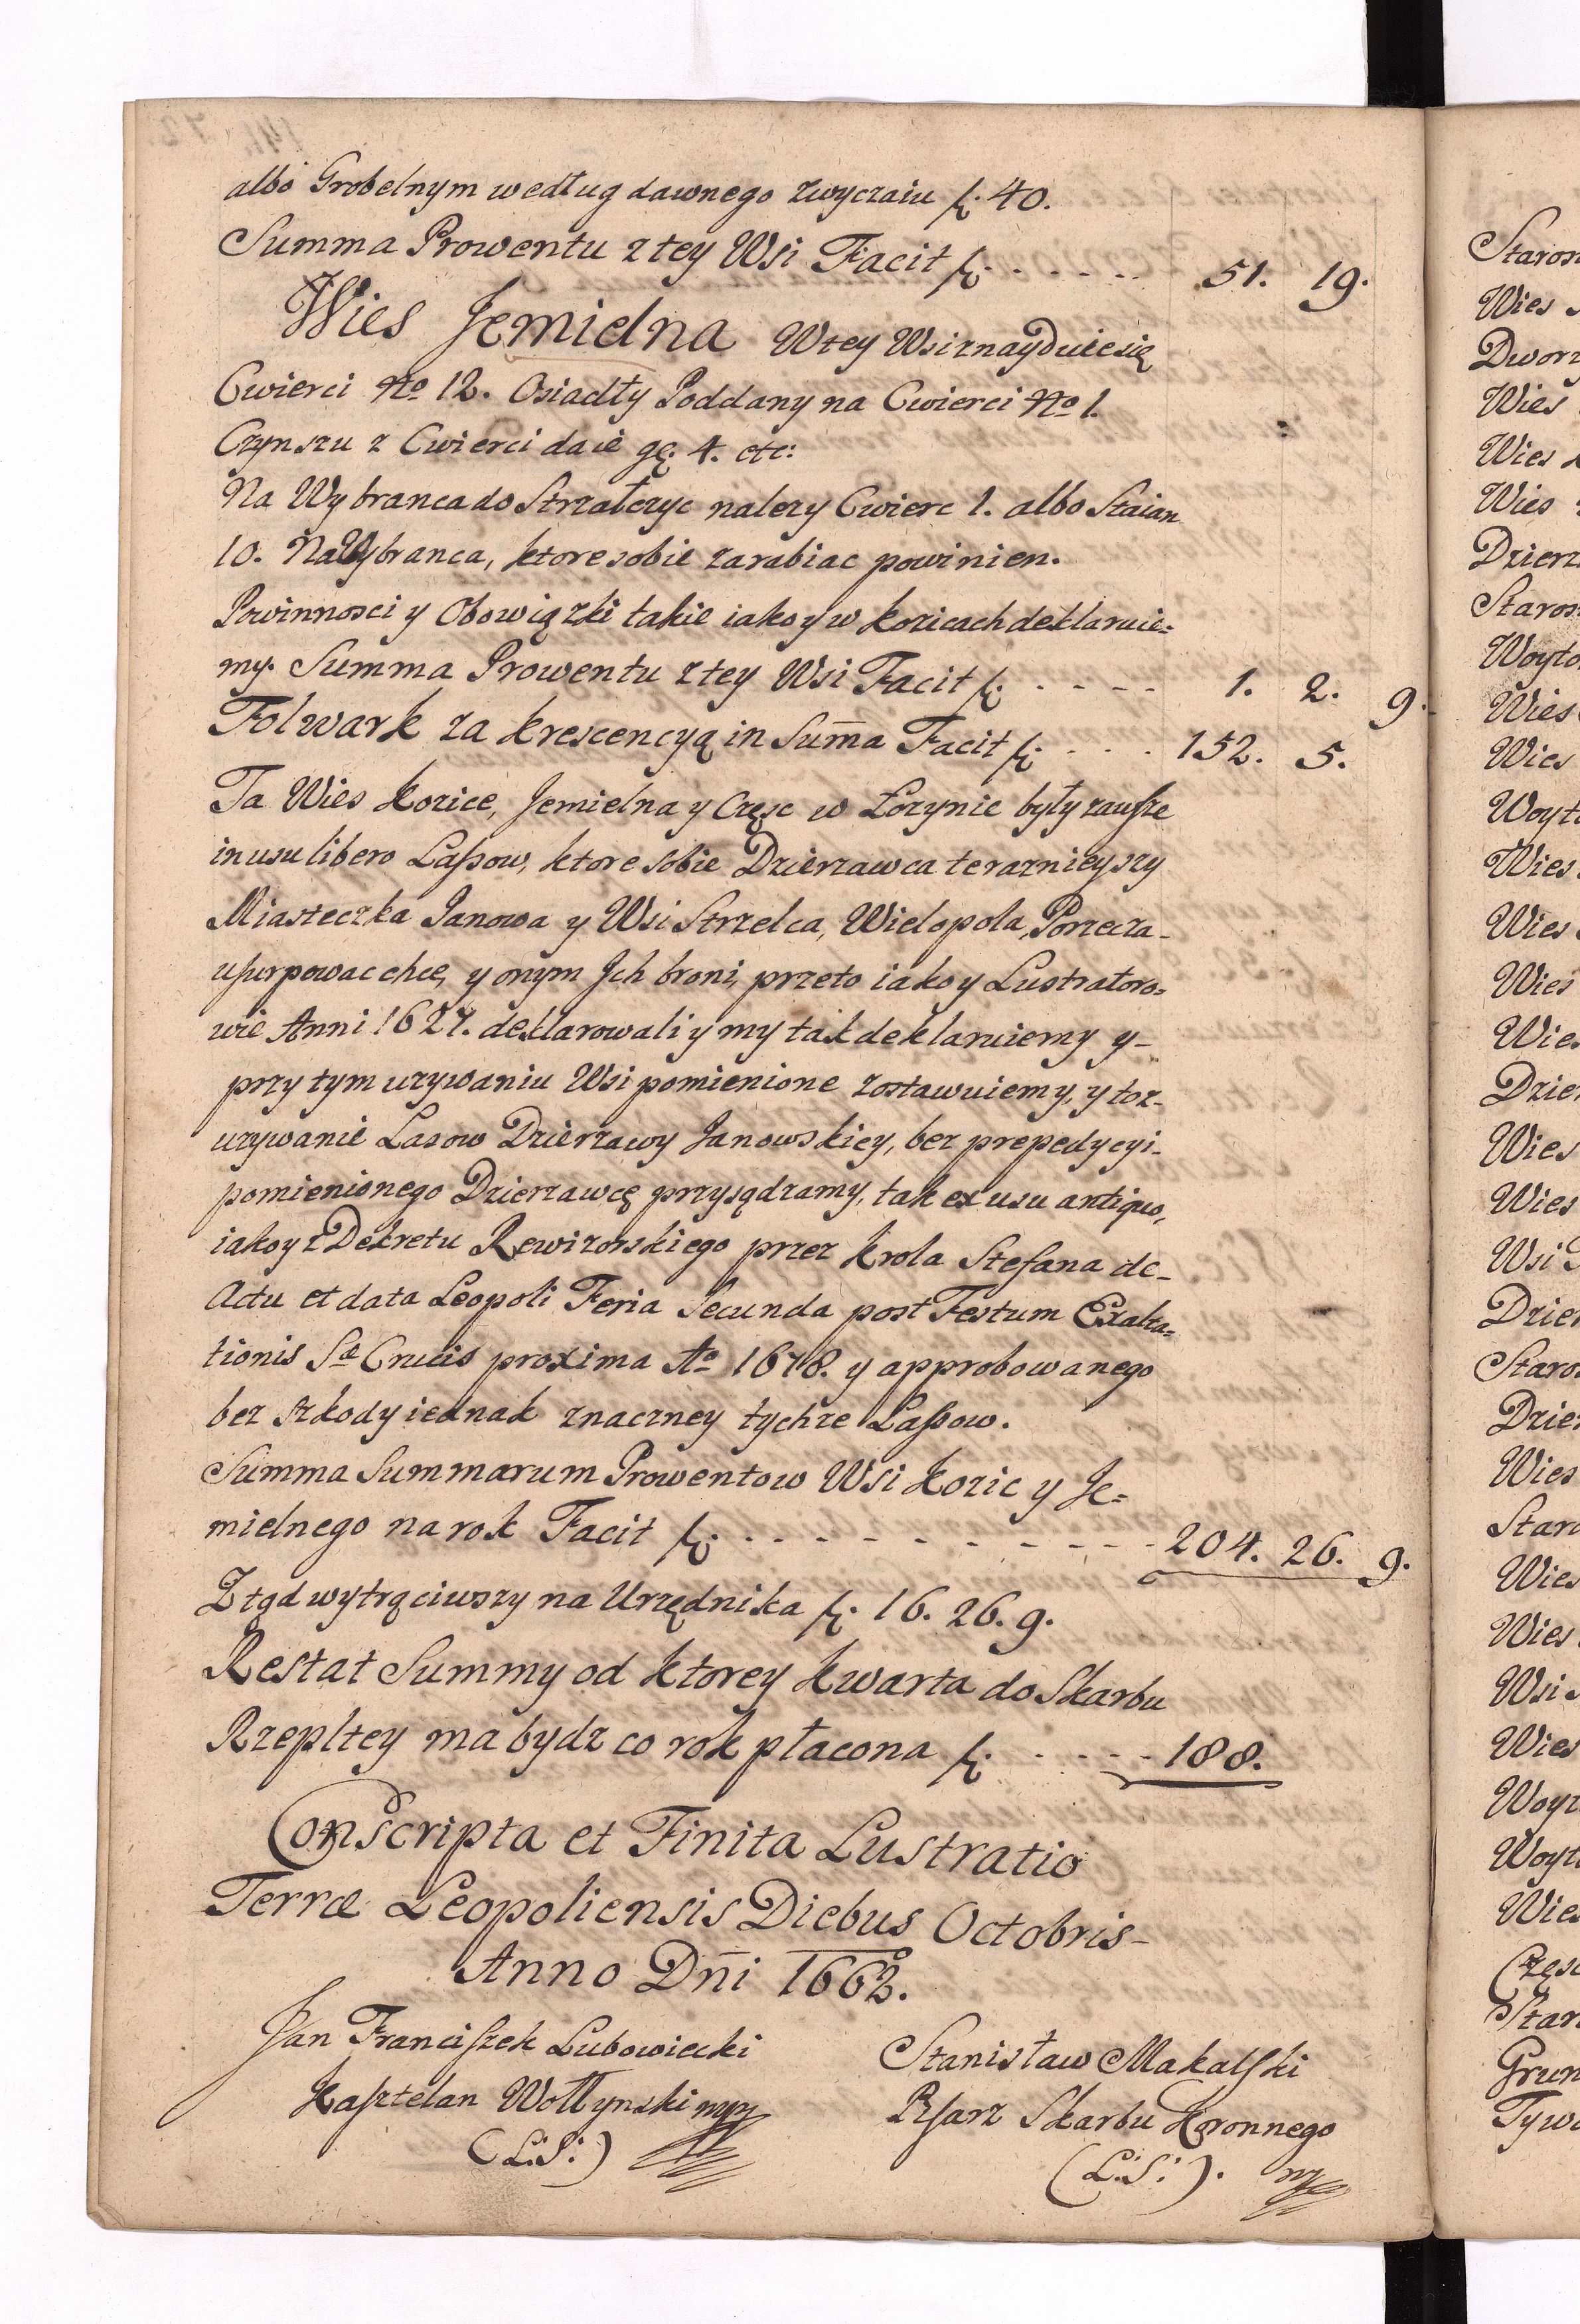 albo Grobelnym według dawnego zwyczaiu f. 40.
Summa Prowentu z tey Wsi Facit f. - - - - - - 51. 19.
Wies Jemielna W tey Wsi znayduie się
Cwierci No 12. Osiadły Poddany na Cwierci No 1.
Czynszu z Cwierci daie gę. 4. etc:
Na Wybranca do Strzałczyc nalezy Cwierc 1. albo Staian
10. Na Wybranca, ktore sobie zarabiac powinien.
Powinnosci y Obowiązki takie iako y w Kozicach deklaruie=
my. Summa Prowentu z tey Wsi Facit f. - - - - 1. 2. 9.
Folwark za krescencyą in Suma Facit f. - - - 152. 5.
Ta Wies Kozice, Jemielna y Częsc w Łozynie były zausze
in usu libero Lassow, ktore sobie Dzierzawca teraznieyszy
Miasteczka Janowa y Wsi Strzelca, Wielopola, Porzecza-
usurpowac chce, y onym Jch broni, przeto iako y Lustratoro=
wie Anni 1627. deklarowali y my tak deklaruiemy y-
przy tym uzywaniu Wsi pomienione zostawuiemy, y toz-
uzywanie Lasow Dzierzawy Janowskiey, bez prepedycyi-
pomienionego Dzierzawcę przysądzamy, tak ex usu antiquo,
iako y z Dekretu Rewizorskiego przez Krola Stefana de-
Actu et data Leopoli Feria Secunda post Festum Exalta=
tionis Sæ Crucis proxima Ao 1678. y approbowanego
bez szkody iednak znaczney tychze Lassow.
Summa Summarum Prowentow Wsi Kozic y Je=
mielnego na rok Facit f. - - - - - - - - - - - 204. 26. 9.
Ztąd wytrąciwszy na Urzędnika f. 16. 26. 9.
Restat Summy od ktorey kwarta do Skarbu
Rzepltey ma bydz co rok płacona f. - - - - - 188.
Conscripta et Finita Lustratio
Terræ Leopoliensis Diebus Octobris-
Anno Dni 1662.
Jan Franciszek Lubowiecki
Kasztelan Wołłynski mpr
(L.S:)
Stanisław Makalski
Pisarz Skarbu Koronnego
(L.S:). mp